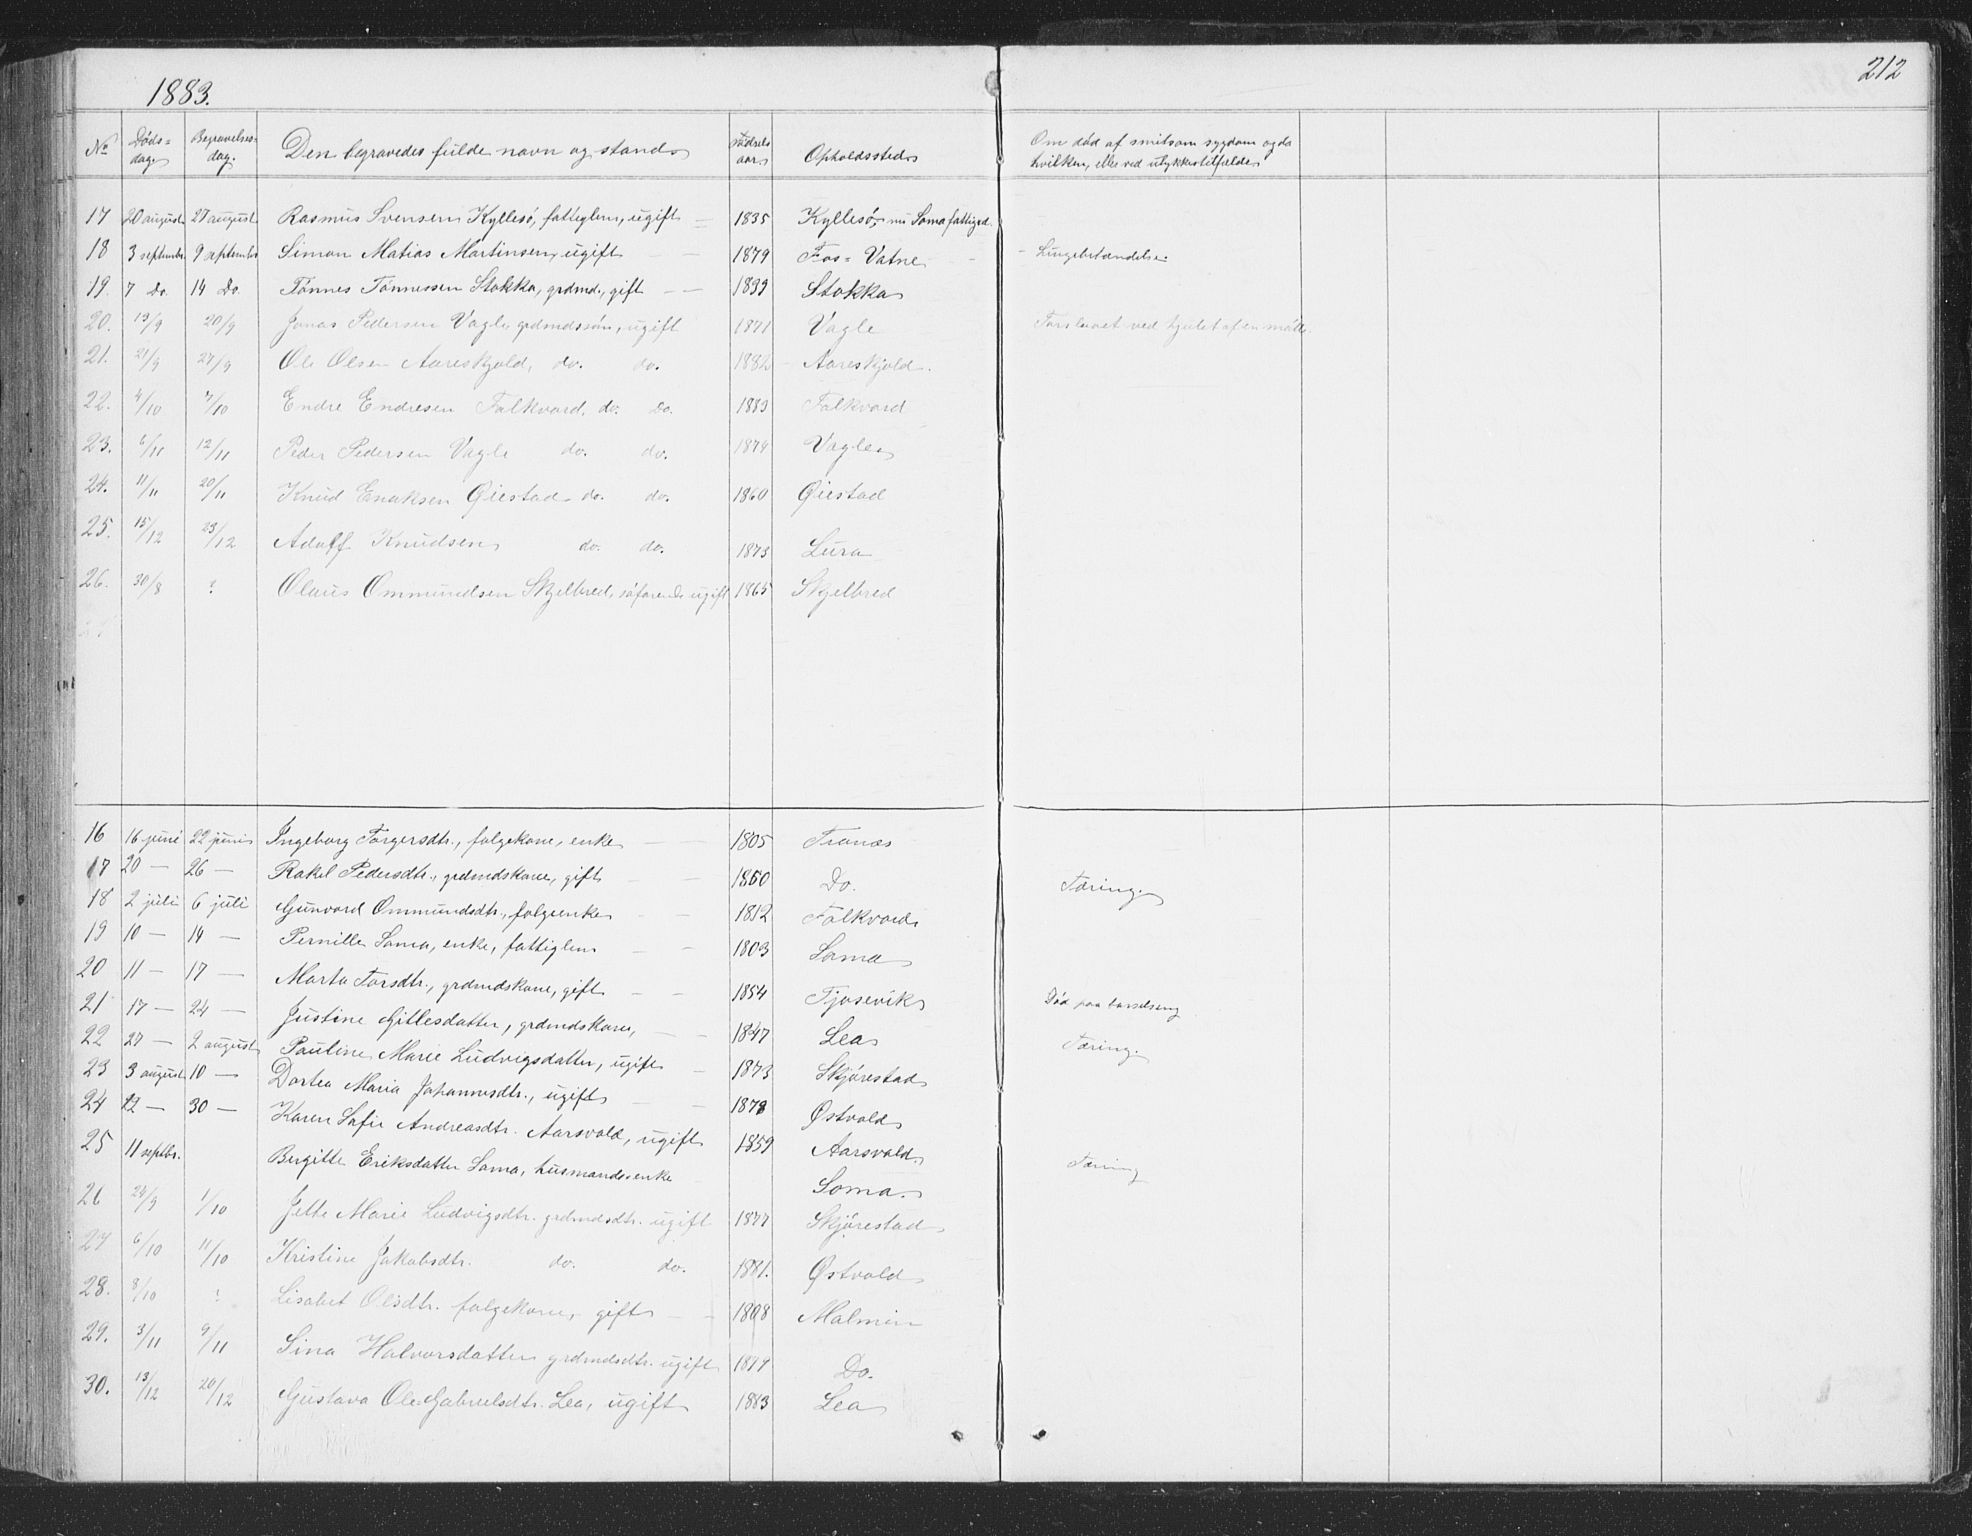 1883.
212
No Døds-dag. Begravelses-dag. Den begravedes fulde navn og stand Fødsels aar. Opholdssted Om død af smitsom sygdom og da hvilken, eller ved ulykkestilfælde
17 20 august 27 august Rasmus Svensen Kyllesø, fattiglem, ugift 1835 Kyllesø, nu Soma fattiggd.
18 3 septembr. 9 septembr Simon Matias Martinsen, ugift 1879 Fos-Vatne - Lungebetændelse.
19. 7 Do. 14 Do. Tønnes Tønnessen Stokka, grdmd., gift 1839 Stokka
20. 13/9 20/9 Jonas Pedersen Vagle, grdmdssøn, ugift 1871 Vagle ved hjulet af en mølle
21. 21/9 27/9 Ole Olsen Aareskjold, do. do. 1882 Aareskjold.
22. 4/10 7/10 Endre Endresen Falkvard, do. Do. 1883 Falkvard
23. 6/11 12/11 Peder Pedersen Vagle do. do. 1874 Vagle
24. 11/11 20/11 Knud Enoksen Øiestad do. do. 1860 Øiestad
25. 15/12 23/12 Adolf Knudsen do. do. 1873 Lura
26. 30/8 ? Olaus Ommundsen Skjelbred, søfarende ugift 1865 Skjelbred
16 16 juni 22 juni Ingeborg Torgersdtr., folgekone, enke 1805 Tronæs
17 20 — 26 — Rakel Pedersdtr., grdmdskone, gift 1850 Do. Tæring.
18 2 juli 6 juli Gunvord Ommundsdtr., folgeenke 1812 Falkvard
19 10 — 14 — Pernille Soma, enke, fattiglem 1803 Soma
20 11 — 17 — Marta Torsdtr., grdmdskone, gift 1854 Tjosevik Død paa barselseng
21 17 — 24 — Justine Gillesdatter, grdmdskone, 1847 Lea Tæring.
22 27 — 2 august Pauline Marie Ludvigsdatter, ugift 1873 Skjørestad
23 3 august 10 — Dortea Maria Johannesdtr., ugift 1878 Østvold
24 12 — 30 — Karen Sofie Andreasdtr. Aarsvold, ugift 1859 Aarsvold. Tæring
25 11 septbr. Bergitte Eriksdatter Soma, husmandsenke Soma.
26 24/9 1/10 Jette Marie Ludvigsdtr. grdmdsdtr. ugift 1877 Skjørestad
27 6/10 11/10 Kristine Jakobsdtr. do. do. 1881. Østvold
28. 8/10 ? Lisabet Olsdtr. folgekone, gift 1808 Malmin
29. 3/11 9/11 Sina Halvorsdatter grdmdsdtr. ugift 1879 Do.
30. 13/12 20/12 Gustava Ole Gabrielsdtr. Lea, ugift 1883 Lea